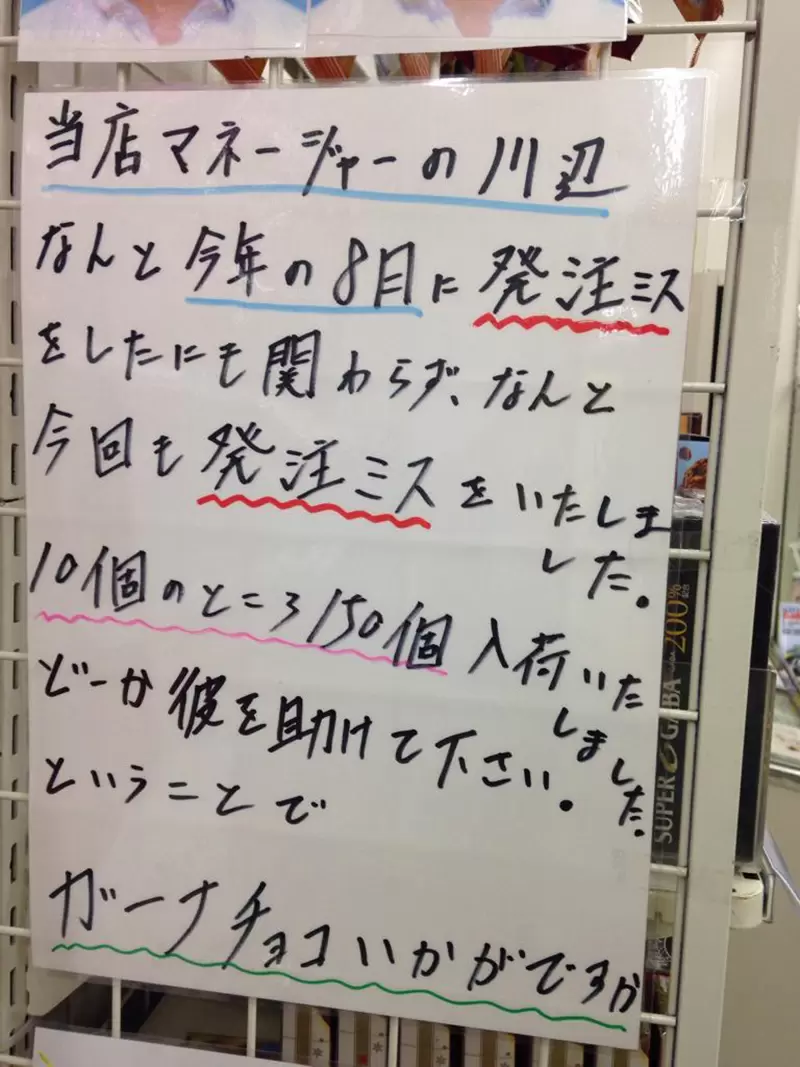 当店マネージャーの川辺
なんと今年の8月に発注ミス
をしたにも関わらず、なんと
今回も発注ミスをいたしま
した。
10個のところ150個入荷いた
しました。
どーか彼を助けて下さい。
ということで
ガーナチョコいかがですか
SUPER GABA 200%